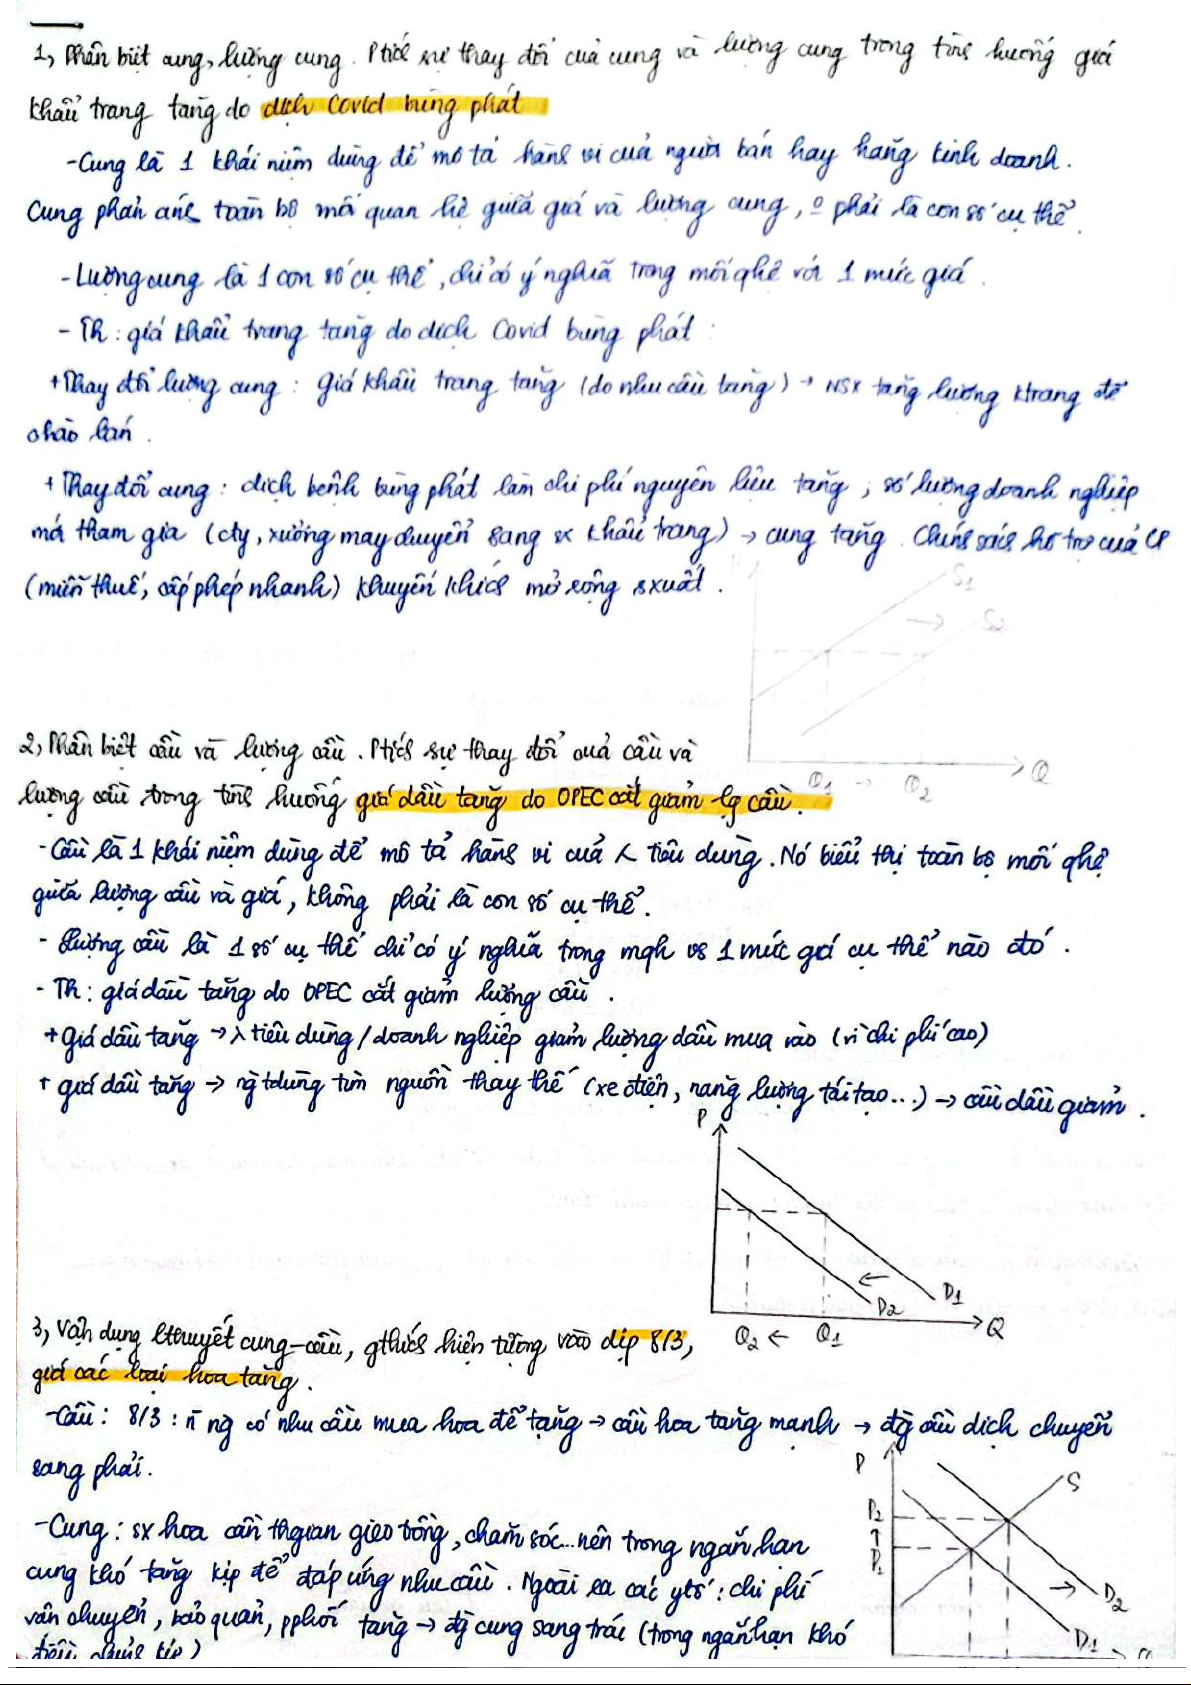 1, Phân biệt cung, lượng cung. Ptích sự thay đổi của cung và lượng cung trong tình huống giá
khẩu trang tăng do dịch Covid bùng phát
-Cung là 1 khái niệm dùng để mô tả hành vi của người bán hay hãng kinh doanh.
Cung phản ánh toàn bộ mối quan hệ giữa giá và lượng cung, o phải là con số cụ thể.
- Lượng cung là 1 con số cụ thể, chỉ có ý nghĩa trong mối qhệ với 1 mức giá.
- Th: giá khẩu trang tăng do dịch Covid bùng phát:
+ Thay đổi lượng cung: Giá khẩu trang tăng (do nhu cầu tăng) → NSX tăng lượng ktrang để
chào bán.
+ Thay đổi cung: dịch bệnh bùng phát làm chi phí nguyên liệu tăng; số lượng doanh nghiệp
mới tham gia (cty, xưởng may chuyển sang sx khẩu trang) → cung tăng. Chính sách hỗ trợ của CP
(miễn thuế, cấp phép nhanh) khuyến khích mở rộng sxuất.
S1
S2
Q1 → Q2
Q
2, Phân biệt cầu và lượng cầu. Ptích sự thay đổi của cầu và
lượng cầu trong tình huống giá dầu tăng do OPEC cắt giảm lg cầu.
- Cầu là 1 khái niệm dùng để mô tả hành vi của ng tiêu dùng. Nó biểu thị toàn bộ mối qhệ
giữa lượng cầu và giá, không phải là con số cụ thể.
- Lượng cầu là 1 số cụ thể chỉ có ý nghĩa trong mqh vs 1 mức giá cụ thể nào đó.
- Th: giá dầu tăng do OPEC cắt giảm lượng cầu.
+ Giá dầu tăng → ng tiêu dùng/doanh nghiệp giảm lượng dầu mua vào (vì chi phí cao)
+ giá dầu tăng → ng tdùng tìm nguồn thay thế (xe điện, năng lượng tái tạo...) → cầu dầu giảm.
P
D2
D1
Q2 ← Q1
Q
3, Vận dụng lthuyết cung-cầu, gthích hiện tượng vào dịp 8/3,
giá các loại hoa tăng.
-Cầu: 8/3: n ng có nhu cầu mua hoa để tặng → cầu hoa tăng mạnh → đg cầu dịch chuyển
sang phải.
P
S
P2
↑
P1
-Cung: sx hoa cần thgian gieo trồng, chăm sóc...nên trong ngắn hạn
cung khó tăng kịp để đáp ứng nhu cầu. Ngoài ra các ytố: chi phí
vận chuyển, bảo quản, pphối tăng → đg cung sang trái (trong ngắn hạn khó
điều chỉnh kịp)
→
D2
D1